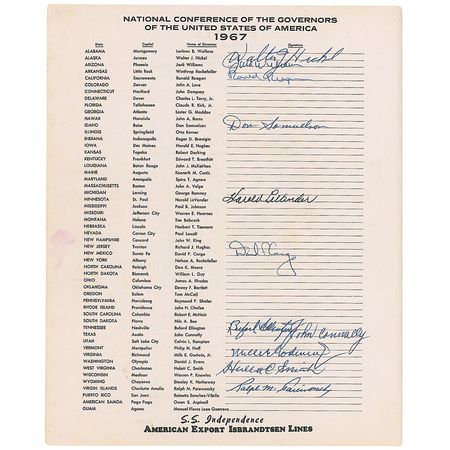 NATIONAL CONFERENCE OF THE GOVERNORS
OF THE UNITED STATES OF AMERICA
1967
State Capital Name of Governor Signature
ALABAMA Montgomery Lurleen B. Wallace
ALASKA Juneau Walter J. Hickel Walter J. Hickel
ARIZONA Phoenix Jack Williams Jack Williams
ARKANSAS Little Rock Winthrop Rockefeller
CALIFORNIA Sacramento Ronald Reagan Ronald Reagan
COLORADO Denver John A. Love
CONNECTICUT Hartford John Dempsey
DELAWARE Dover Charles L. Terry, Jr.
FLORIDA Tallahassee Claude R. Kirk, Jr.
GEORGIA Atlanta Lester G. Maddox
HAWAII Honolulu John A. Burns
IDAHO Boise Don Samuelson Don Samuelson
ILLINOIS Springfield Otto Kerner
INDIANA Indianapolis Roger D. Branigin
IOWA Des Moines Harold E. Hughes
KANSAS Topeka Robert Docking
KENTUCKY Frankfort Edward T. Breathitt
LOUISIANA Baton Rouge John J. McKeithen
MAINE Augusta Kenneth M. Curtis
MARYLAND Annapolis Spiro T. Agnew
MASSACHUSETTS Boston John A. Volpe
MICHIGAN Lansing George Romney
MINNESOTA St. Paul Harold LeVander Harold LeVander
MISSISSIPPI Jackson Paul B. Johnson
MISSOURI Jefferson City Warren E. Hearnes
MONTANA Helena Tim Babcock
NEBRASKA Lincoln Norbert T. Tiemann
NEVADA Carson City Paul Laxalt
NEW HAMPSHIRE Concord John W. King
NEW JERSEY Trenton Richard J. Hughes
NEW MEXICO Santa Fe David F. Cargo David F. Cargo
NEW YORK Albany Nelson A. Rockefeller
NORTH CAROLINA Raleigh Dan K. Moore
NORTH DAKOTA Bismarck William L. Guy
OHIO Columbus James A. Rhodes
OKLAHOMA Oklahoma City Dewey F. Bartlett
OREGON Salem Tom McCall
PENNSYLVANIA Harrisburg Raymond P. Shafer
RHODE ISLAND Providence John H. Chafee
SOUTH CAROLINA Columbia Robert E. McNair
SOUTH DAKOTA Pierre Nils A. Boe
TENNESSEE Nashville Buford Ellington Buford Ellington
TEXAS Austin John Connally John Connally
UTAH Salt Lake City Calvin L. Rampton
VERMONT Montpelier Philip H. Hoff
VIRGINIA Richmond Mills E. Godwin, Jr. Mills E. Godwin Jr.
WASHINGTON Olympia Daniel J. Evans
WEST VIRGINIA Charleston Hulett C. Smith Hulett C. Smith
WISCONSIN Madison Warren P. Knowles
WYOMING Cheyenne Stanley K. Hathaway
VIRGIN ISLANDS Charlotte Amalie Ralph M. Paiewonsky Ralph M. Paiewonsky
PUERTO RICO San Juan Roberto Sanchez-Vilella
AMERICAN SAMOA Pago Pago Owen S. Aspinall
GUAM Agana Manuel Flores Leon Guerrero
S.S. Independence
AMERICAN EXPORT ISBRANDTSEN LINES